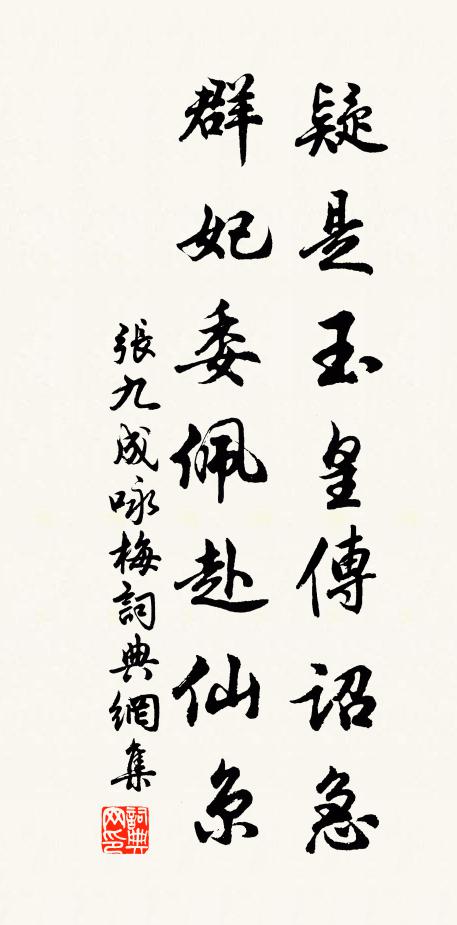 疑是玉皇傳詔急
群妃委佩赴仙京
張九成咏梅詞典網集
詞典網印